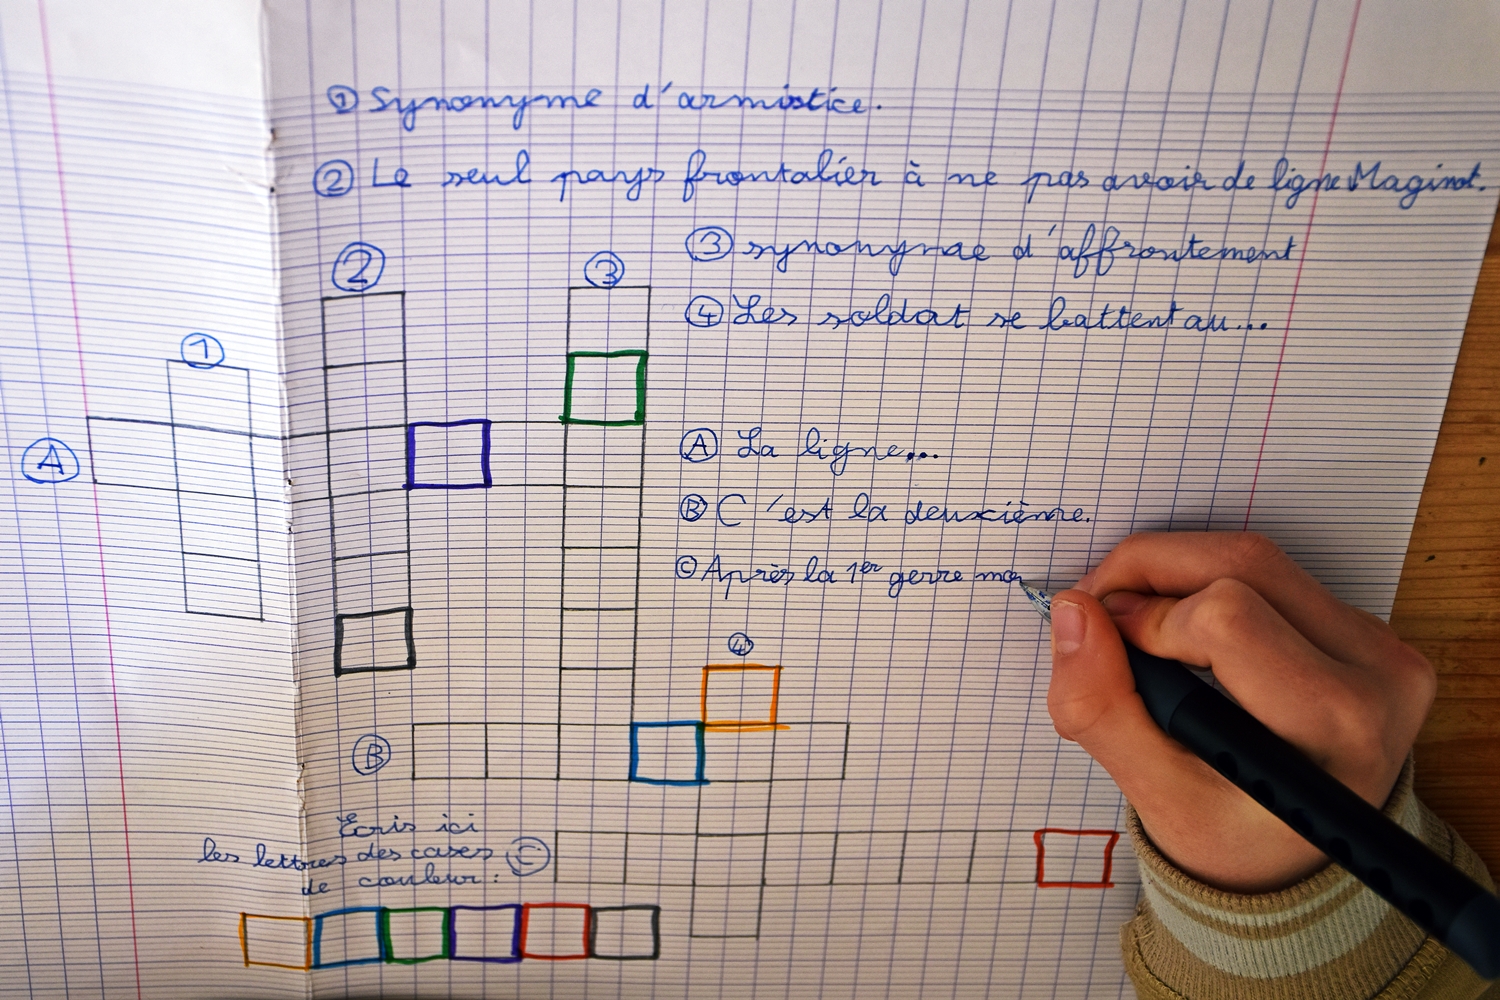 ① Synonyme d'armistice.
② Le seul pays frontalier à ne pas avoir de ligne Maginot.
③ synonyme d'affrontement
④ Les soldat se battent au...
2
3
1
A
Ⓐ La ligne...
Ⓑ C'est la deuxième.
Ⓒ Après la 1er gerre mon
4
B
Ecris ici
les lettres des cases
de couleur :
C